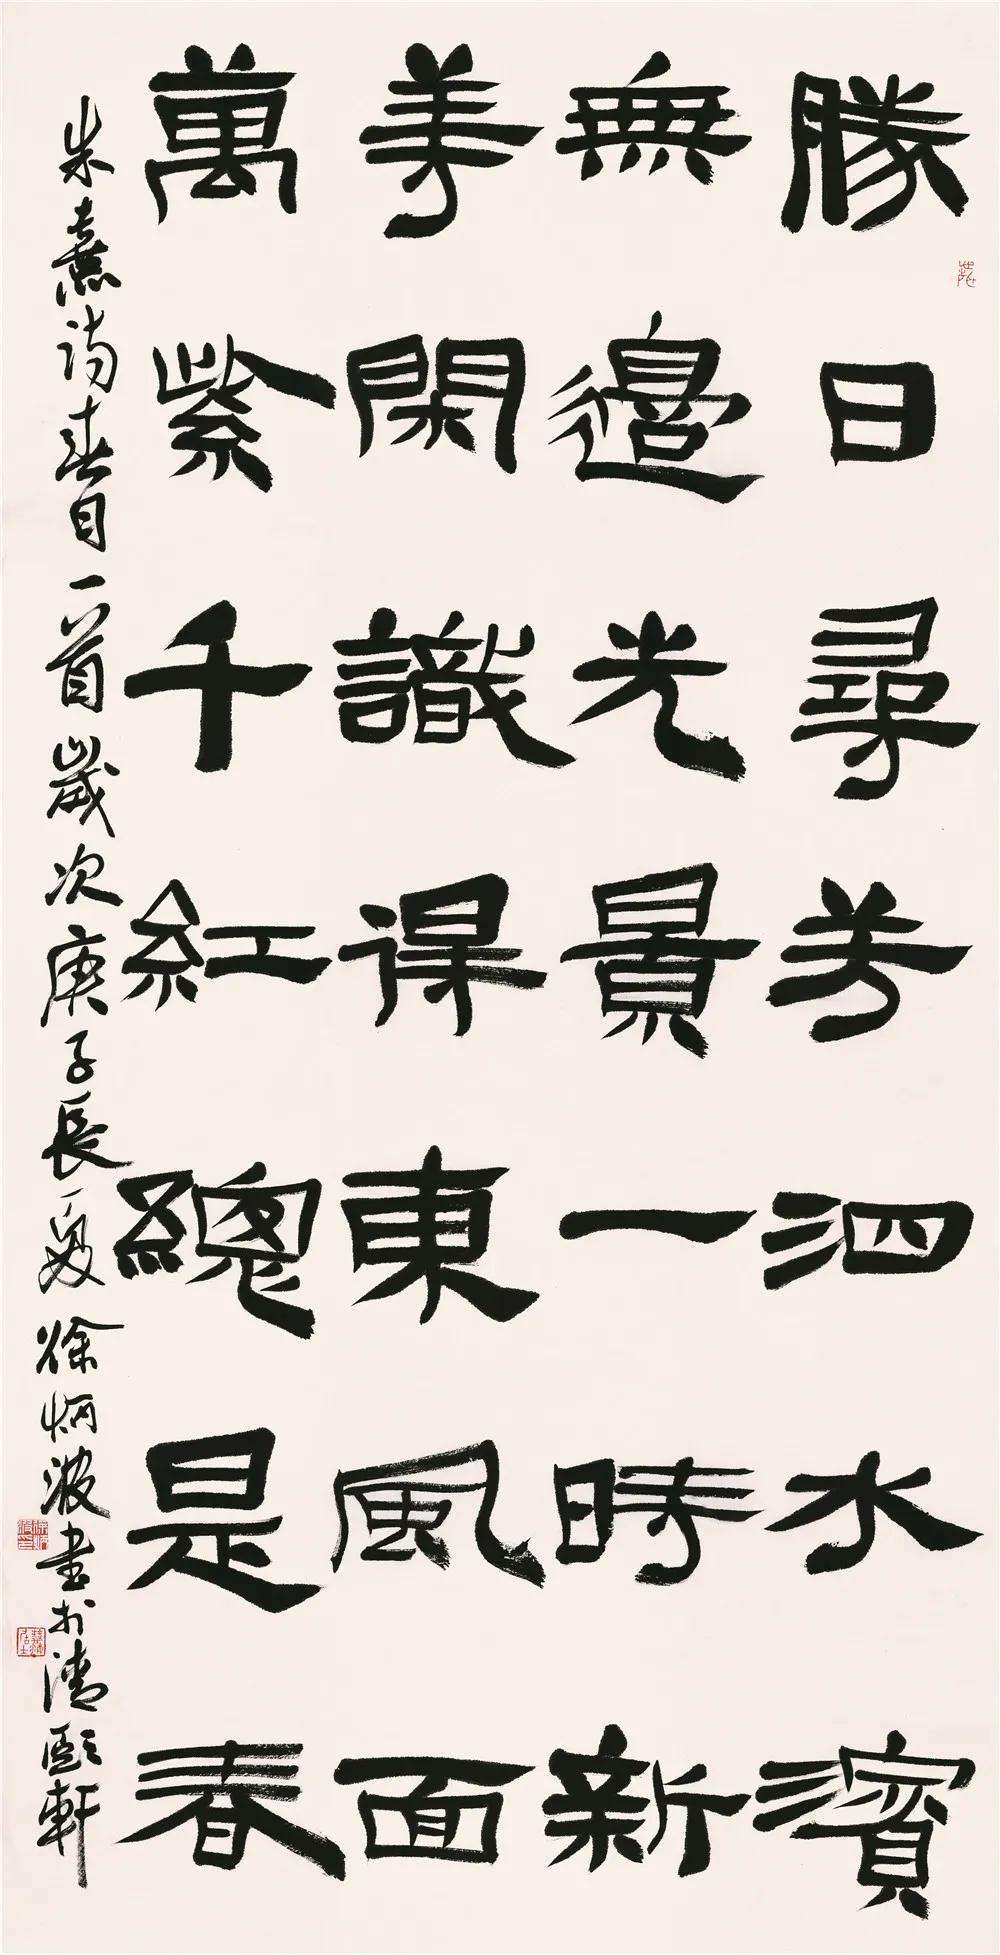 勝日尋芳泗水濱
無邊光景一時新
等閑識得東風面
萬紫千紅總是春
朱熹詩春日一首歲次庚子長夏徐炳波書於清頤軒